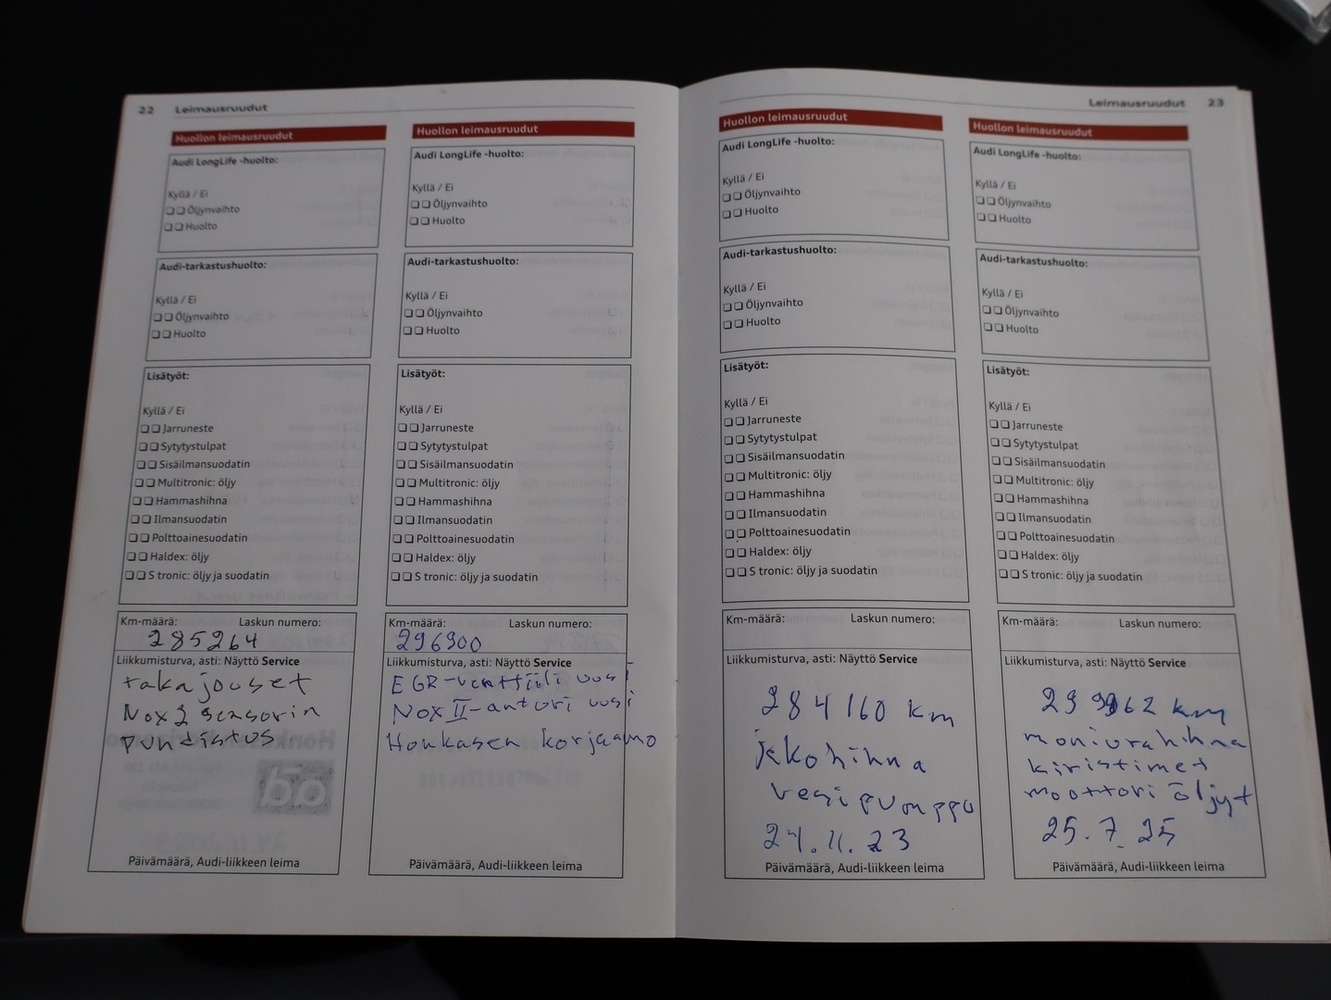 22 Leimausruudut
Huollon leimausruudut
Audi LongLife -huolto:
Kyllä / Ei
Öljynvaihto
Huolto
Audi-tarkastushuolto:
Kyllä / Ei
Öljynvaihto
Huolto
Lisätyöt:
Kyllä / Ei
Jarruneste
Sytytystulpat
Sisäilmansuodatin
Multitronic: öljy
Hammashihna
Ilmansuodatin
Polttoainesuodatin
Haldex: öljy
S tronic: öljy ja suodatin
Km-määrä: Laskun numero:
285264
Liikkumisturva, asti: Näyttö Service
takajouset
Nox 2 sensorin
puhdistus
Päivämäärä, Audi-liikkeen leima
Huollon leimausruudut
Audi LongLife -huolto:
Kyllä / Ei
Öljynvaihto
Huolto
Audi-tarkastushuolto:
Kyllä / Ei
Öljynvaihto
Huolto
Lisätyöt:
Kyllä / Ei
Jarruneste
Sytytystulpat
Sisäilmansuodatin
Multitronic: öljy
Hammashihna
Ilmansuodatin
Polttoainesuodatin
Haldex: öljy
S tronic: öljy ja suodatin
Km-määrä: Laskun numero:
296900
Liikkumisturva, asti: Näyttö Service
EGR-venttiili uusi
Nox II-anturi uusi
Honkasen korjaamo
Päivämäärä, Audi-liikkeen leima
Leimausruudut 23
Huollon leimausruudut
Audi LongLife -huolto:
Kyllä / Ei
Öljynvaihto
Huolto
Audi-tarkastushuolto:
Kyllä / Ei
Öljynvaihto
Huolto
Lisätyöt:
Kyllä / Ei
Jarruneste
Sytytystulpat
Sisäilmansuodatin
Multitronic: öljy
Hammashihna
Ilmansuodatin
Polttoainesuodatin
Haldex: öljy
S tronic: öljy ja suodatin
Km-määrä: Laskun numero:
Liikkumisturva, asti: Näyttö Service
284160 km
jakohihna
vesipumppu
24.11.23
Päivämäärä, Audi-liikkeen leima
Huollon leimausruudut
Audi LongLife -huolto:
Kyllä / Ei
Öljynvaihto
Huolto
Audi-tarkastushuolto:
Kyllä / Ei
Öljynvaihto
Huolto
Lisätyöt:
Kyllä / Ei
Jarruneste
Sytytystulpat
Sisäilmansuodatin
Multitronic: öljy
Hammashihna
Ilmansuodatin
Polttoainesuodatin
Haldex: öljy
S tronic: öljy ja suodatin
Km-määrä: Laskun numero:
Liikkumisturva, asti: Näyttö Service
km
moniurahihna
kiristimet
moottori öljyt
25.7.25
Päivämäärä, Audi-liikkeen leima